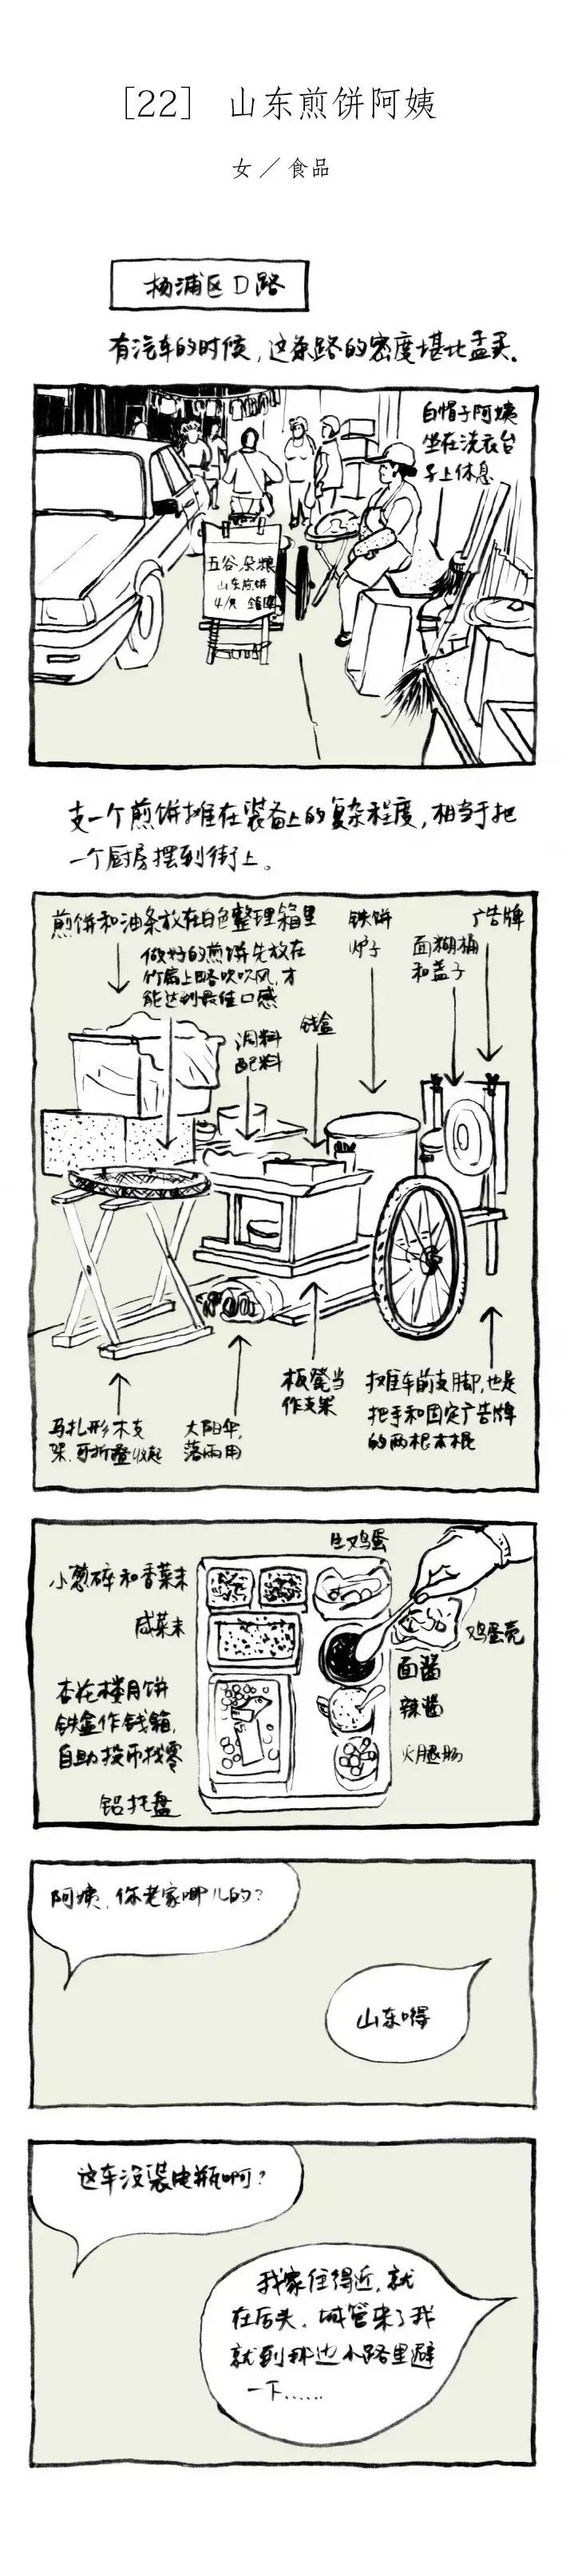 [22] 山东煎饼阿姨
女／食品
杨浦区D路
有汽车的时候，这条路的密度堪比孟买。
白帽子阿姨
坐在洗衣台
子上休息
五谷杂粮
山东煎饼
4/只
支一个煎饼摊在装备上的复杂程度，相当于把
一个厨房摆到街上。
煎饼和油条放在白色整理箱里
做好的煎饼先放在
竹扁上略吹吹风，才
能达到最佳口感
调料
配料
钱盒
铁饼
炉子
面糊桶
和盖子
广告牌
马扎形木支
架，可折叠收起
太阳伞，
落雨用
板凳当
作支架
摊车前支脚，也是
把手和固定广告牌
的两根木棍
生鸡蛋
小葱碎和香菜末
咸菜末
鸡蛋壳
面酱
辣酱
火腿肠
杏花楼月饼
铁盒作钱箱，
自助投币找零
铝托盘
阿姨，你老家哪儿的？
山东嘚
这车没装电瓶啊？
我家住得近，就
在后头，城管来了我
就到那边小路里避
一下……